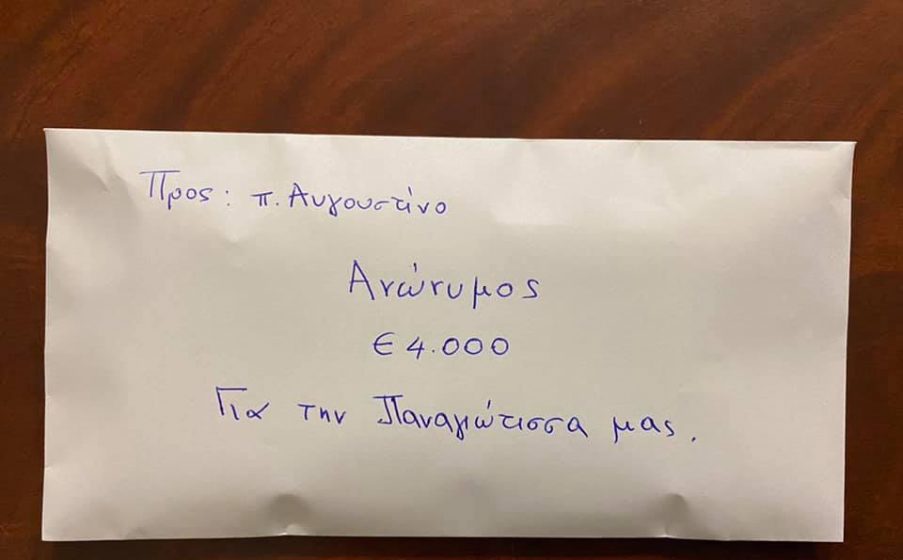 Προς: π. Αυγουστίνο
Ανώνυμος
€ 4.000
Για την Παναγιώτισσα μας.